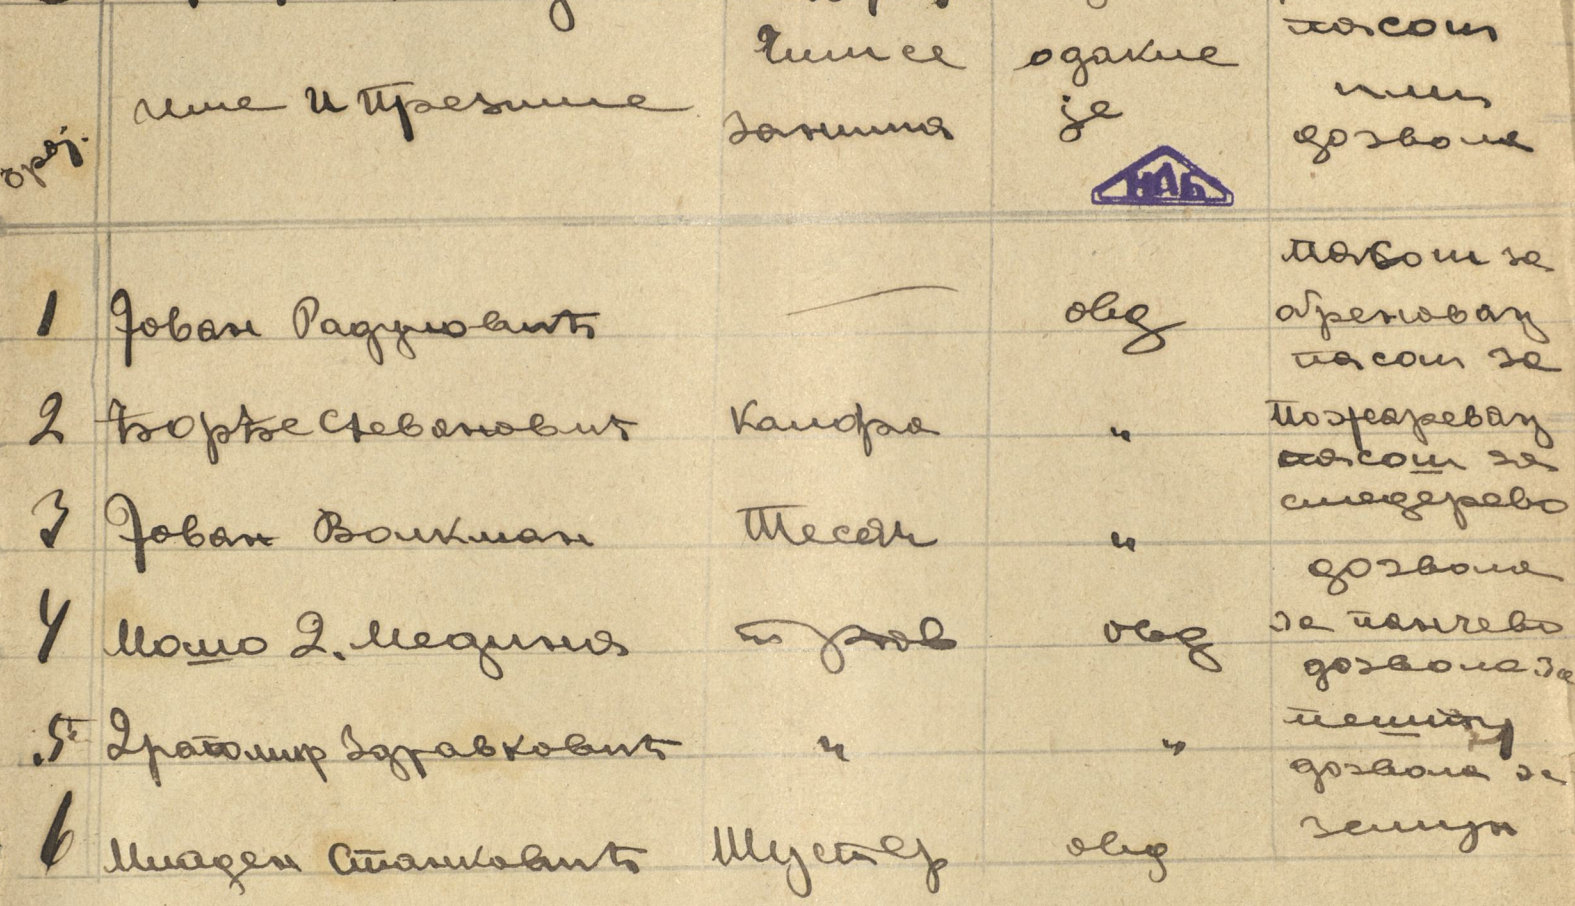 број.
име и презиме
Чим се
занима
одакле
је
пасош
или
дозвола
НАБ
1 Јован Радуловић — овд пасош за
абреновац
2 Ђорђе Стевановић Калфа " пасош за
Пожаревац
3 Јован Волкман Тесач " пасош за
смедерево
4 Мошо Д. Медина тргов овд дозвола
за панчево
5 Драгомир Здравковић " " дозвола за
пешту
6 Младен Станковић Шустер овд дозвола за
земун